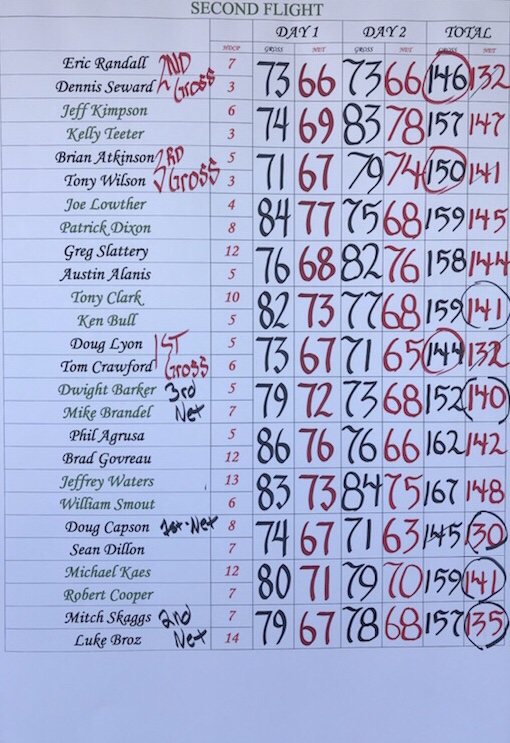 SECOND FLIGHT
DAY 1 DAY 2 TOTAL
HDCP GROSS NET GROSS NET GROSS NET
Eric Randall 2ND 7
73 66 73 66 146 132
Dennis Seward GROSS 3
Jeff Kimpson 6
74 69 83 78 157 147
Kelly Teeter 3
Brian Atkinson 3RD 5
71 67 79 74 150 141
Tony Wilson GROSS 3
Joe Lowther 4
84 77 75 68 159 145
Patrick Dixon 8
Greg Slattery 12
76 68 82 76 158 144
Austin Alanis 5
Tony Clark 10
82 73 77 68 159 141
Ken Bull 5
Doug Lyon 1ST 5
73 67 71 65 144 132
Tom Crawford GROSS 6
Dwight Barker 3rd 5
79 72 73 68 152 140
Mike Brandel Net 7
Phil Agrusa 5
86 76 76 66 162 142
Brad Govreau 12
Jeffrey Waters 13
83 73 84 75 167 148
William Smout 6
Doug Capson 1st-Net 8
74 67 71 63 145 130
Sean Dillon 7
Michael Kaes 12
80 71 79 70 159 141
Robert Cooper 7
Mitch Skaggs 2nd 7
79 67 78 68 157 135
Luke Broz Net 14